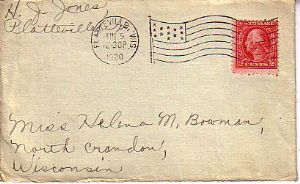 H. J. Jones
Platteville
PLATTEVILLE, WIS.
JUN 9
12:30P.
1920
2 CENTS 2
Miss Helena M. Bowman,
North Crandon,
Wisconsin